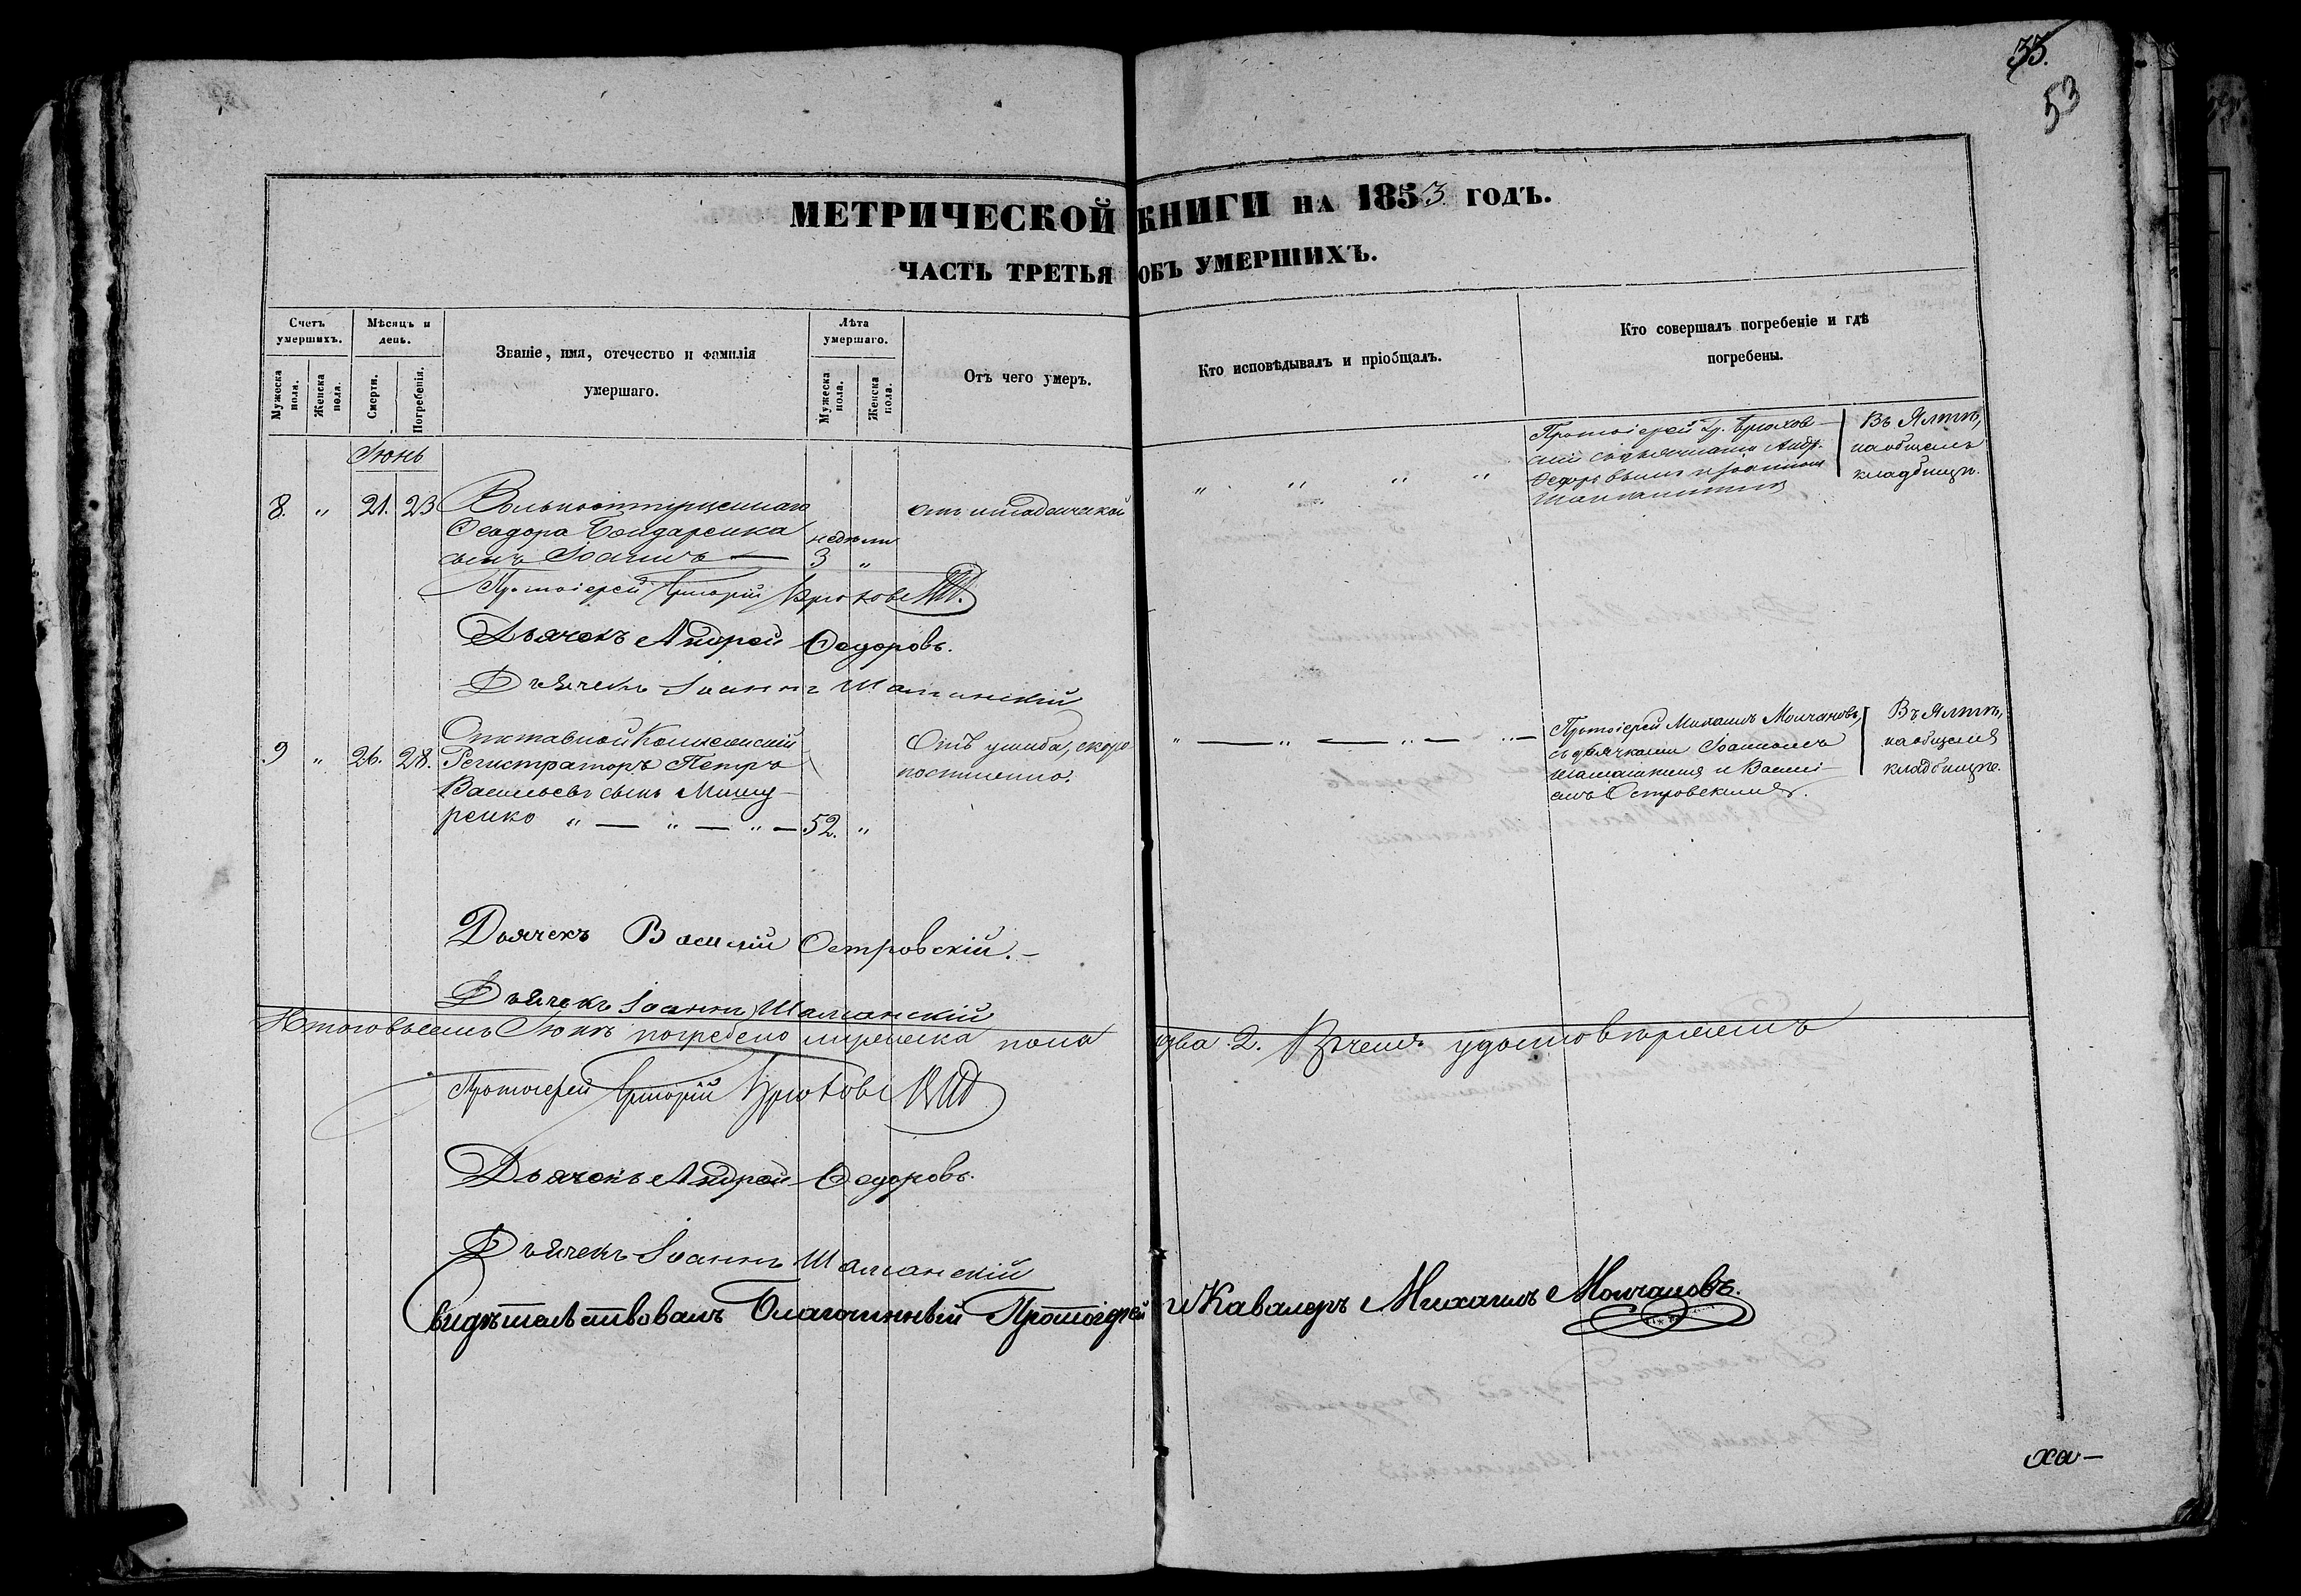 33.
53
МЕТРИЧЕСКОЙ КНИГИ НА 1853 ГОДЪ.
ЧАСТЬ ТРЕТЬЯ ОБЪ УМЕРШИХЪ.
Счетъ умершихъ.
Мужеска пола.
Женска пола.
Мѣсяцъ и день.
Смерти.
Погребенія.
Званіе, имя, отечество и фамилія умершаго.
Лѣта умершаго.
Мужеска пола.
Женска пола.
Отъ чего умеръ.
Кто исповѣдывалъ и пріобщалъ.
Кто совершалъ погребеніе и гдѣ погребены.
Іюнь
8. " 21. 23 Вольноотпущеннаго
Ѳеодора Бондаренка
сынъ Іоаннъ —
недѣли
3 "
отъ младенческой
" " " "
Протоіерей Гр.
съ дьячками Андр.
Ѳедоровымъ и Іоанномъ
Въ Ялтѣ,
на общемъ
кладбищѣ.
Протоіерей Григорій
Дьячекъ Андрей Ѳедоровъ.
Дьячекъ Іоаннъ Шаманскій
9 " 26. 28. Отставной Коллежскій
Регистраторъ Петръ
Васильевъ сынъ Мишу-
ренко " — " — " — 52. "
Отъ ушиба, скоро-
постижно.
" — " — " — " —
Протоіерей Михаилъ Молчановъ,
съ дьячками Іоанномъ
Шаманскимъ и Васили-
емъ Островскимъ.
Въ Ялтѣ,
на общемъ
кладбищѣ.
Дьячекъ Василій Островскій. —
Дьячекъ Іоаннъ Шаманскій
Итого въ семъ Іюнѣ погребено мужеска пола два 2. В чемъ удостовѣряемъ
Протоіерей Григорій
Дьячекъ Андрей Ѳедоровъ.
Дьячекъ Іоаннъ Шаманскій
Свидѣтельствовалъ Благочинный Протоіерей и Кавалеръ Михаилъ Молчановъ.
ха—